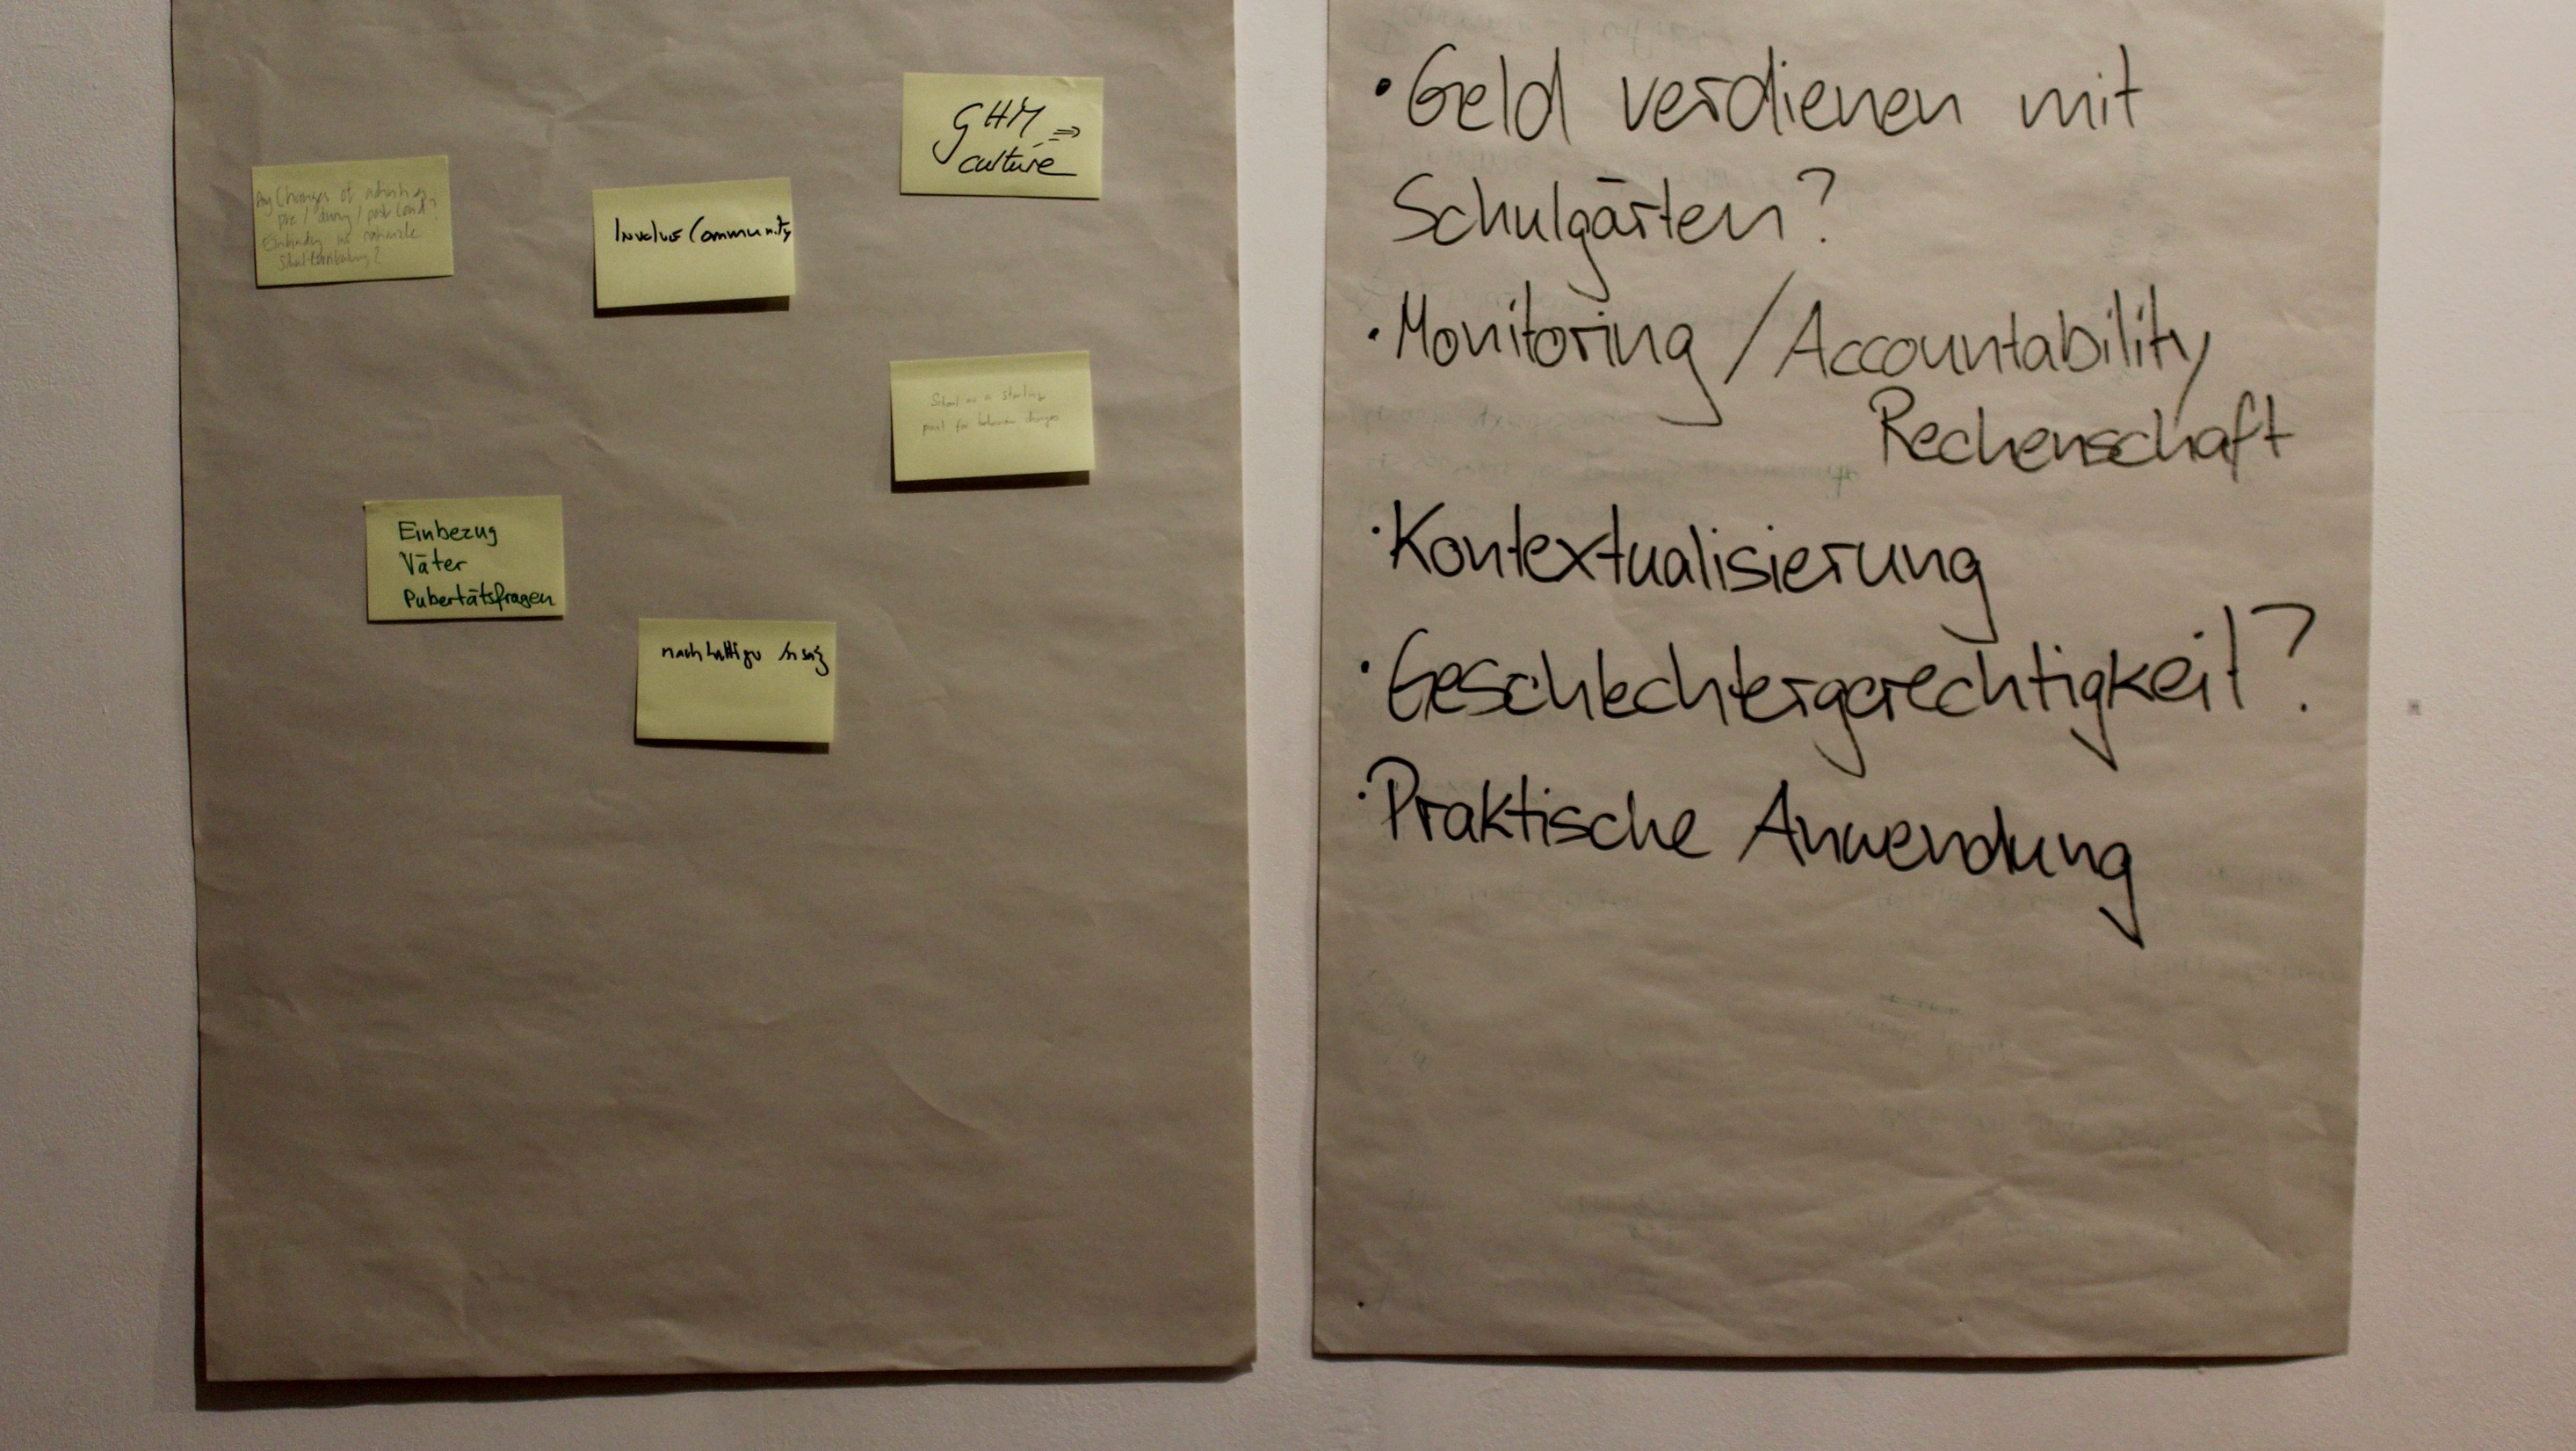 Any Changes of
pre / during / post Covid?
Einbindung ins nationale
Involve Community
GHM ⇒
culture
School as a starting
point for behavior changes
Einbezug
Väter
Pubertätsfragen
nachhaltiger
• Geld verdienen mit
Schulgärten?
• Monitoring / Accountability
Rechenschaft
• Kontextualisierung
• Geschlechtergerechtigkeit?
• Praktische Anwendung